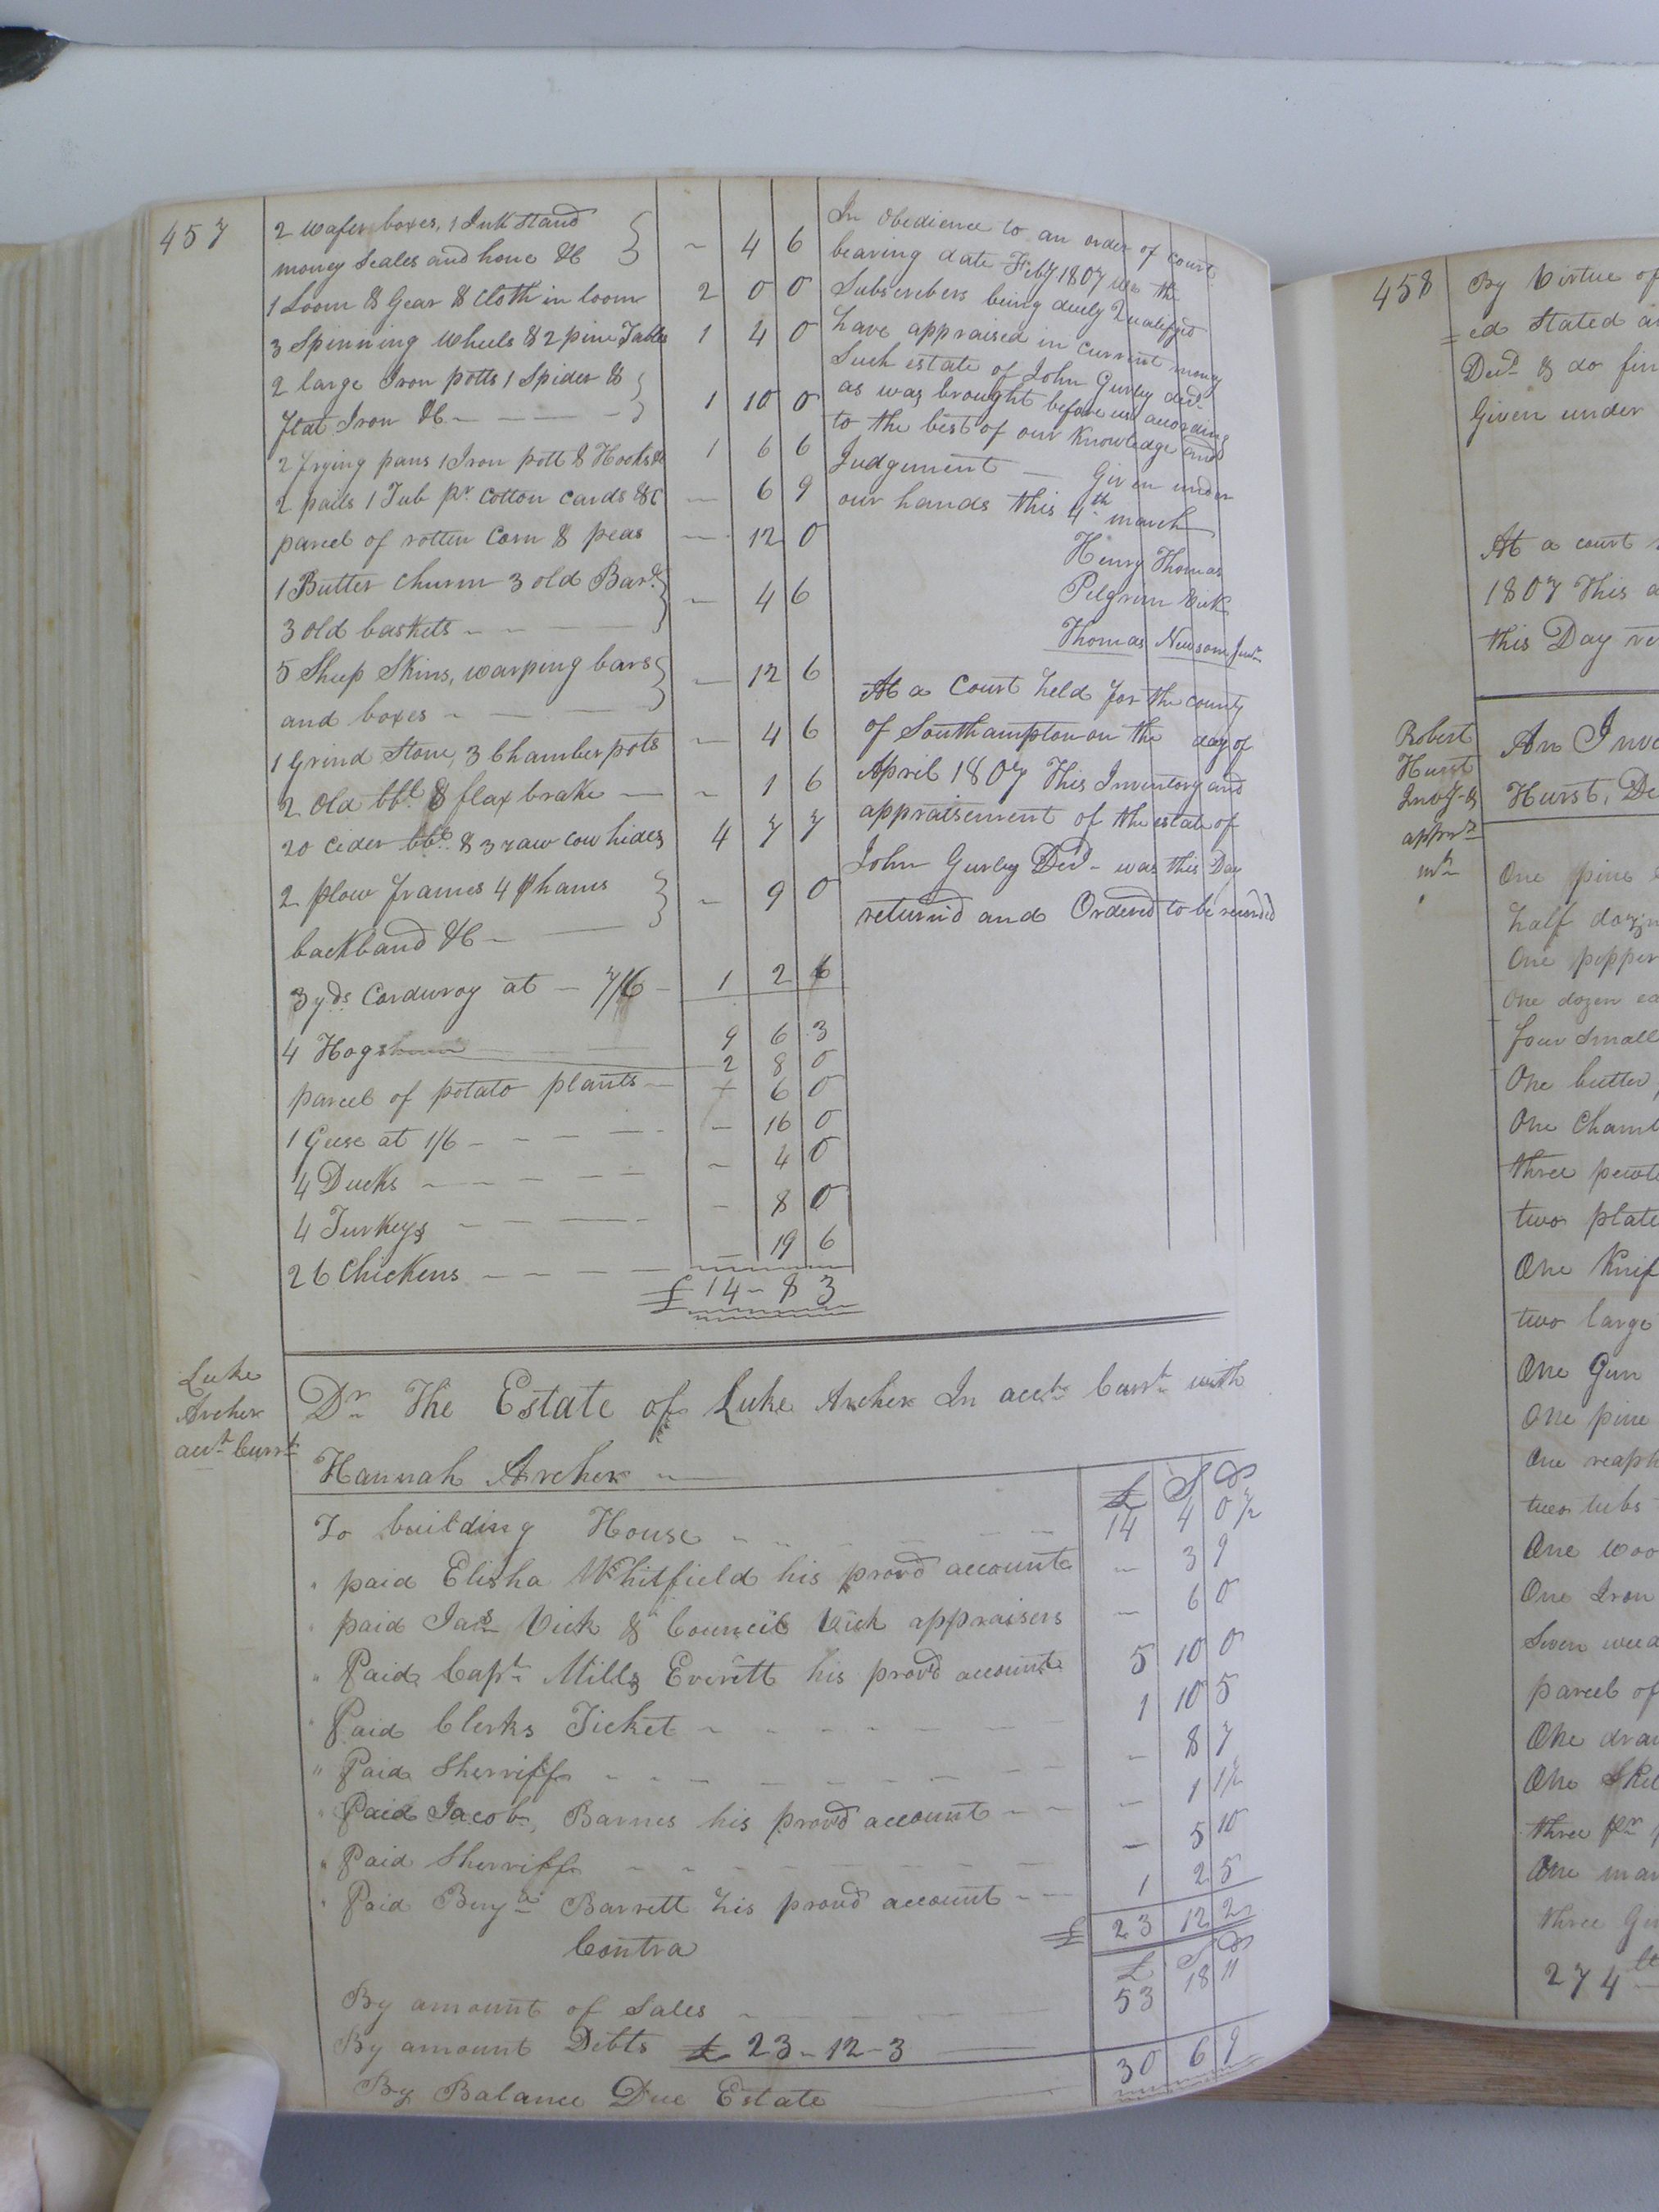 457
2 wafer boxes, 1 Ink stand
money Scales and hone &C } ~ 4 6
1 Loom & Gear & Cloth in loom 2 0 0
3 Spinning Wheels & 2 pine Tables 1 4 0
2 large Iron potts 1 Spider &
flat Iron &C } 1 10 0
2 frying pans 1 Iron pott & Hooks &c 1 6 6
2 pails 1 Tub pr Cotton Cards &C — 6 9
parcel of rotten Corn & peas — 12 0
1 Butter Churn 3 old Bar.
3 old baskets } — 4 6
5 Sheep Skins, warping bars
and boxes } — 12 6
1 Grind Stone, 3 Chamber pots — 4 6
2 Old bbl & flax brake — ~ 1 6
20 Cider bbs & 3 raw Cow hides 4 7 7
2 plow frames 4 phams
backband &C } ~ 9 0
3 yds Corduroy at — 7/6 1 2 6
9 6 3
4 Hogs 2 8 0
parcel of potato plants 6 0
1 Geese at 1/6 — 16 0
4 Ducks ~ 4 0
4 Turkeys — 8 0
26 Chickens — 19 6
£ 14 - 8 3
In Obedience to an order of Court
bearing date Feby 1807 We the
Subscribers being duely Qualified
have appraised in Current money
Such estate of John Gurley decd
as was brought before us according
to the best of our Knowledge and
Judgement — Given under
our hands this 4th march
Henry Thomas
Pilgrim Vick
Thomas Newsom Junr
At a Court held for the county
of Southampton on the day of
April 1807 This Inventory and
appraisement of the estate of
John Gurley Decd was this Day
returnd and Ordered to be recorded
Luke
Archer
acct Currt
Dr The Estate of Luke Archer In acct Currt with
Hannah Archer
£ S D
To building House 14 4 0 1/2
" paid Elisha Whitfield his provd account — 3 9
" paid Jas Vick & Council Vick appraisers — 6 0
" Paid Capt Mills Everitt his provd account 5 10 0
" Paid Clerks Ticket 1 10 5
" Paid Sherriff — 8 7
" Paid Jacob Barnes his provd account — 1 1 1/2
" Paid Sherriff — 5 10
" Paid Benja Barrett his provd account 1 2 5
£ 23 12 2
Contra £ S D
By amount of Sales 53 18 11
By amount Debts £ 23 - 12 - 3
By Balance Due Estate 30 6 9
458
By Virtue of
=ed Stated
Decd & do
Given under
At a court
1807 This
this Day
Robert
Hurst
Invy &
apprs
mt
An Inve
Hurst, De
One pine
half dozen
One pepper
One dozen
four Small
One butter
One Chamb
three pewte
two plate
One Knif
two large
One Gun
One pine
One reaph
two tubs
One woo
One Iron
Seven weed
parcel of
One draw
One Skil
three pr
One man
three Gu
274 lb